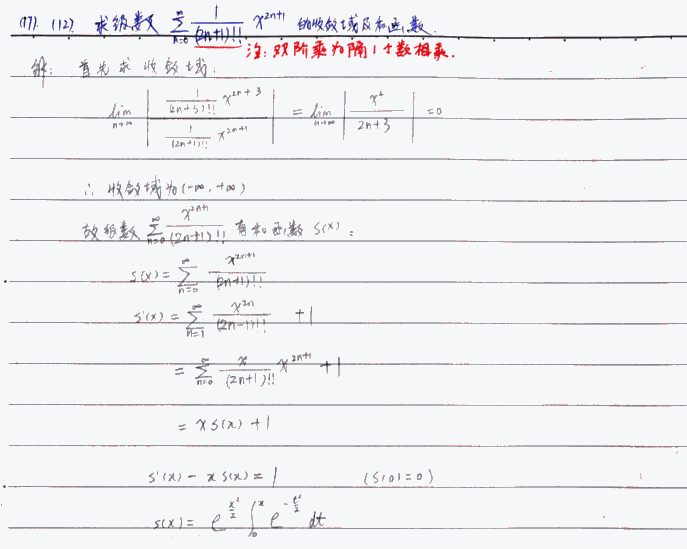 (17). (12). 求级数 $\sum_{n=0}^{\infty} \frac{1}{(2n+1)!!} x^{2n+1}$ 的收敛域及和函数.
注: 双阶乘为隔1个数相乘.
解: 首先求收敛域:
$\lim_{n\to\infty} \left| \frac{\frac{1}{(2n+3)!!} x^{2n+3}}{\frac{1}{(2n+1)!!} x^{2n+1}} \right| = \lim_{n\to\infty} \left| \frac{x^2}{2n+3} \right| = 0$
∴ 收敛域为 (-∞, +∞)
故级数 $\sum_{n=0}^{\infty} \frac{x^{2n+1}}{(2n+1)!!}$ 有和函数 S(x):
$S(x) = \sum_{n=0}^{\infty} \frac{x^{2n+1}}{(2n+1)!!}$
$S'(x) = \sum_{n=1}^{\infty} \frac{x^{2n}}{(2n-1)!!} + 1$
$= \sum_{n=0}^{\infty} \frac{x}{(2n+1)!!} x^{2n+1} + 1$
$= x S(x) + 1$
$S'(x) - x S(x) = 1 \quad (S(0) = 0)$
$S(x) = e^{\frac{x^2}{2}} \int_0^x e^{-\frac{t^2}{2}} dt$